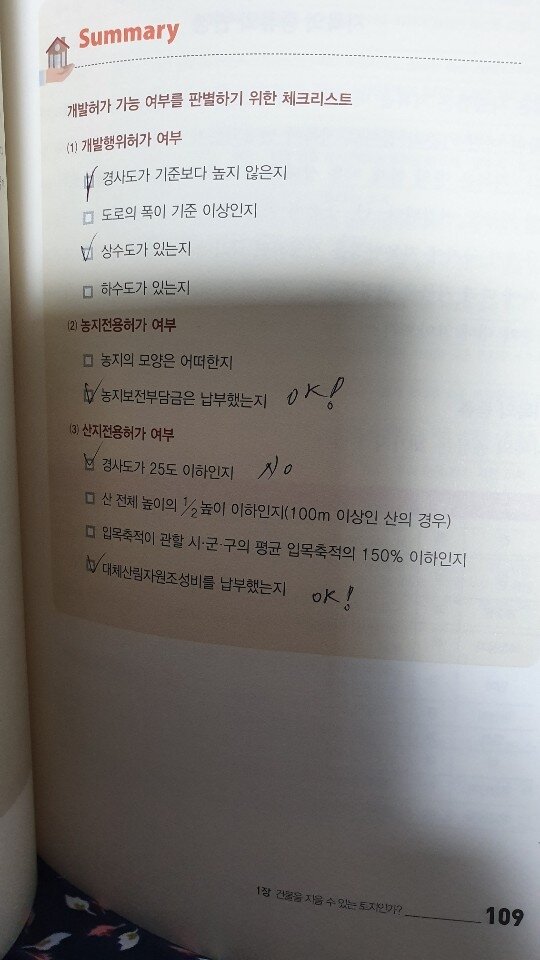 Summary
개발허가 가능 여부를 판별하기 위한 체크리스트
(1) 개발행위허가 여부
경사도가 기준보다 높지 않은지
도로의 폭이 기준 이상인지
상수도가 있는지
하수도가 있는지
(2) 농지전용허가 여부
농지의 모양은 어떠한지
농지보전부담금은 납부했는지 OK!
(3) 산지전용허가 여부
경사도가 25도 이하인지 NO
산 전체 높이의 1/2 높이 이하인지(100m 이상인 산의 경우)
입목축적이 관할 시·군·구의 평균 입목축적의 150% 이하인지
대체산림자원조성비를 납부했는지 OK!
1장 건물을 지을 수 있는 토지인가? 109